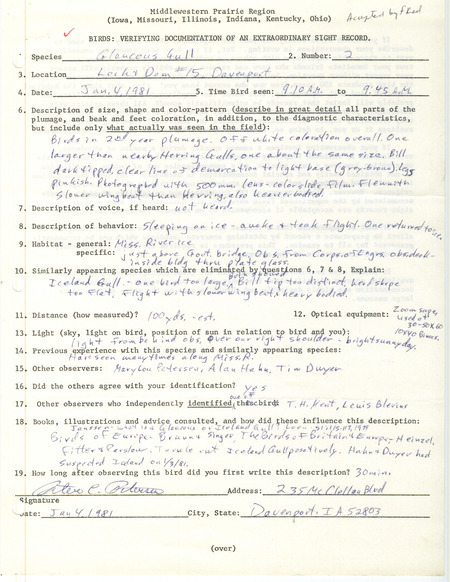 Middlewestern Prairie Region
(Iowa, Missouri, Illinois, Indiana, Kentucky, Ohio)
Accepted by
BIRDS: VERIFYING DOCUMENTATION OF AN EXTRAORDINARY SIGHT RECORD.
Species Glaucous Gull 2. Number: 2
3. Location Lock & Dam #15, Davenport
4. Date: Jan. 4, 1981 5. Time Bird seen: 9:10 A.M. to 9:45 A.M.
6. Description of size, shape and color-pattern (describe in great detail all parts of the
plumage, and beak and feet coloration, in addition, to the diagnostic characteristics,
but include only what actually was seen in the field):
Birds in 2nd year plumage. Off white coloration overall. One
larger than nearby Herring Gulls, one about the same size. Bill
dark tipped, clear line of demarcation to light base (grey-brown). Legs
pinkish. Photographed with 500mm. lens-color slide film. Flew with
slower wingbeat than Herring, also heavier bodied.
7. Description of voice, if heard: not heard.
8. Description of behavior: Sleeping on ice - awoke & took flight. One returned to ice.
9. Habitat - general: Miss. River Ice
specific: Just above Govt. Bridge, Obs. from Corps of Engrs. obs. deck -
inside bldg thru plate glass.
10. Similarly appearing species which are eliminated by questions 6, 7 & 8, Explain:
Iceland Gull - one bird too large, Bill tip too distinct, head shape
too flat, flight with slower wing beats, heavy bodied.
11. Distance (how measured)? 100 yds. - est. 12. Optical equipment: Zoom scope
used at
30-50X60
10X40 Binos.
13. Light (sky, light on bird, position of sun in relation to bird and you):
light from behind obs. over our right shoulder - bright sunny day.
14. Previous experience with this species and similarly appearing species:
Have seen many times along Miss. R.
15. Other observers: Marylou Petersen, Alan Hahn, Tim Dwyer
16. Did the others agree with your identification? yes
17. Other observers who independently identified this bird: T.H. Kent, Lewis Blevins
18. Books, illustrations and advice consulted, and how did these influence this description:
Birds of Europe - Bruun & Singer, The Birds of Britain & Europe - Heinzel,
Fitter & Parslow. To rule out Iceland Gull positively. Hahn & Dwyer had
suspected Iceland on 1/3/81.
19. How long after observing this bird did you first write this description? 30 min.
Address: 235 McClellan Blvd
Signature
Date: Jan 4, 1981 City, State: Davenport, IA 52803
(over)